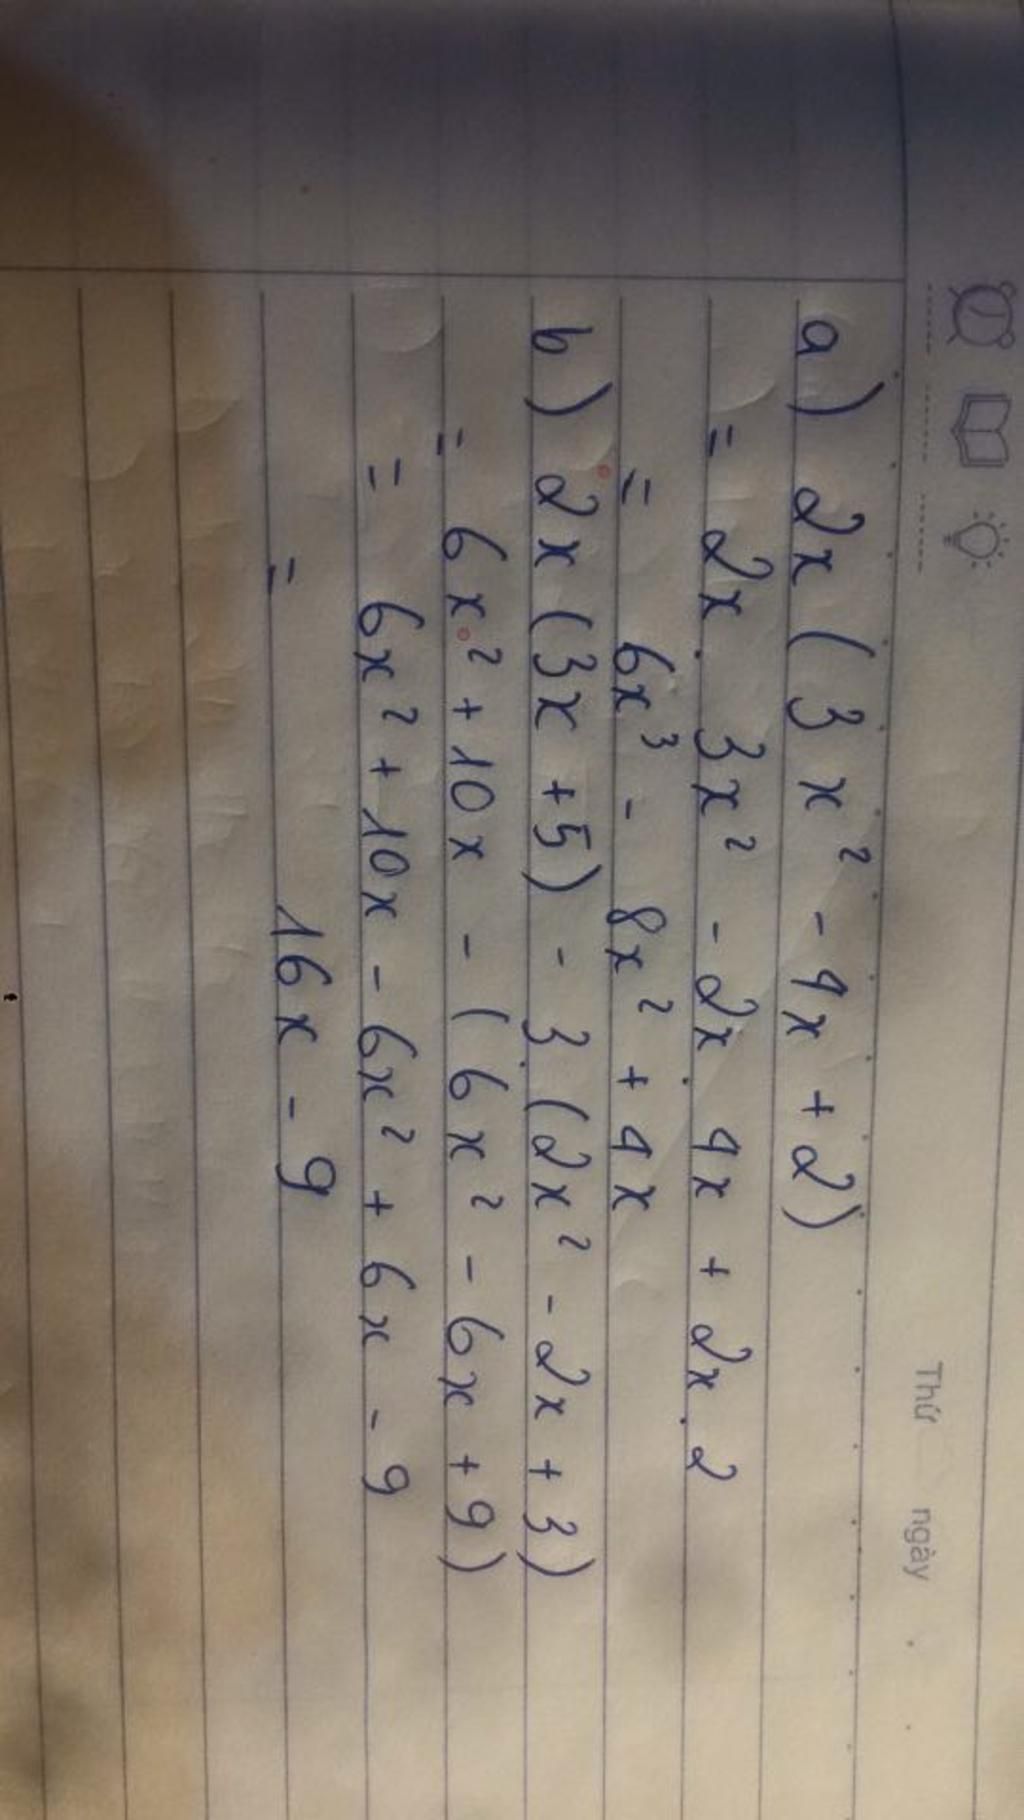 Thứ ngày
a) 2x ( 3x² - 4x + 2)
= 2x . 3x² - 2x . 4x + 2x . 2
= 6x³ - 8x² + 4x
b) 2x (3x + 5) - 3 (2x² - 2x + 3)
= 6x² + 10x - (6x² - 6x + 9)
= 6x² + 10x - 6x² + 6x - 9
= 16x - 9